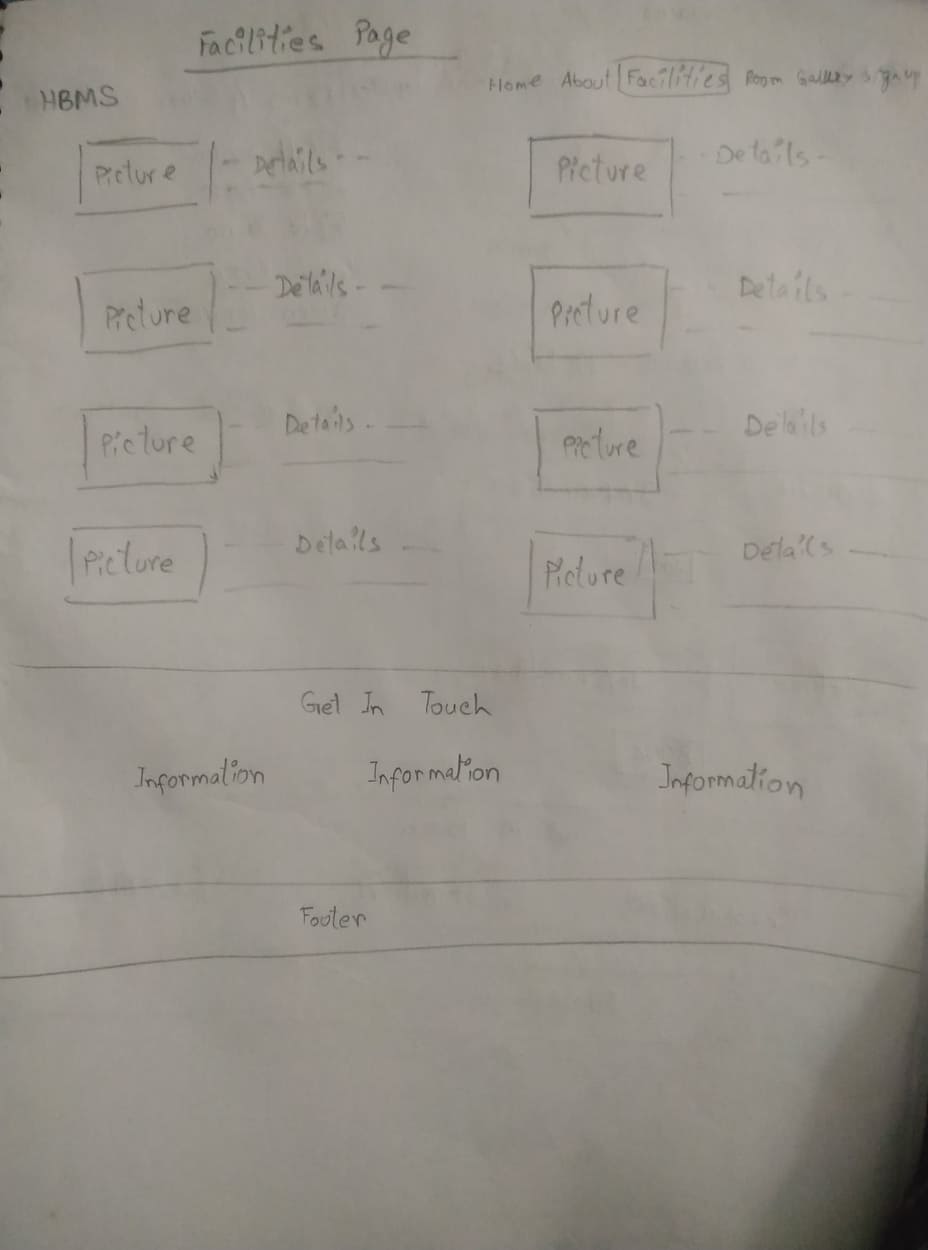 Facilities Page
HBMS Home About Facilities Room Gallery Signup
Picture Details Picture Details
Picture Details Picture Details
Picture Details Picture Details
Picture Details Picture Details
Get In Touch
Information Information Information
Footer